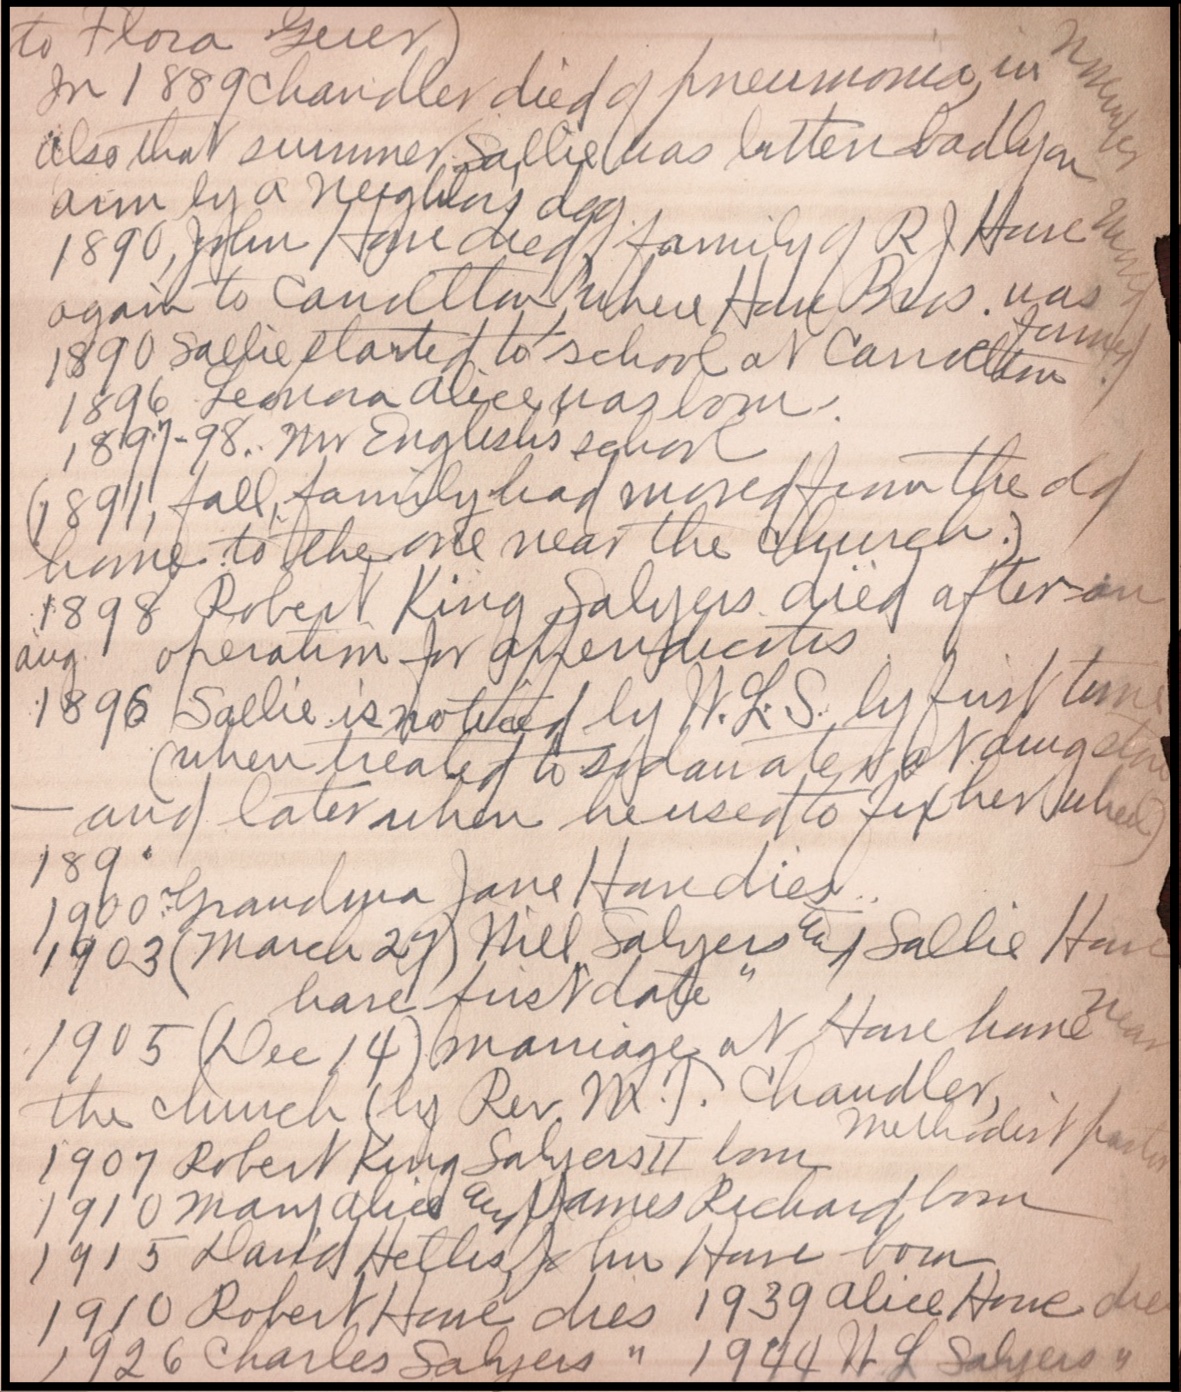 to Flora Geier)
In 1889 Chandler died of pneumonia, in November
also that summer, Sallie was bitten badly on
arm by a neighbors dog.
1890, John Hare died, family of R J Hare moved
again to Carrollton where Hare Bros. was
formed
1890 Sallie started to school at Carrollton
1896 Leonora Alice was born.
1897-98.. Mr English's school
(1891, fall, family had moved from the old
home to the one near the church.)
1898 Robert King Salyers died after an
Aug operation for appendicitis
1896 Sallie is noticed by W.L.S. by first time
(when treated to soda water at drug store
— and later when he used to fix her wheel)
189
1900 Grandma Jane Hare dies..
1903 (March 27) Will Salyers and Sallie Hare
have first date"
1905 (Dec 14) marriage at Hare home near
the church (by Rev. M.T. Chandler,
Methodist pastor
1907 Robert King Salyers II born
1910 Mary Alice and James Richard born
1915 David Hettis, John Hare born
1910 Robert Hare dies 1939 Alice Hare dies
1926 Charles Salyers " 1944 W L Salyers "